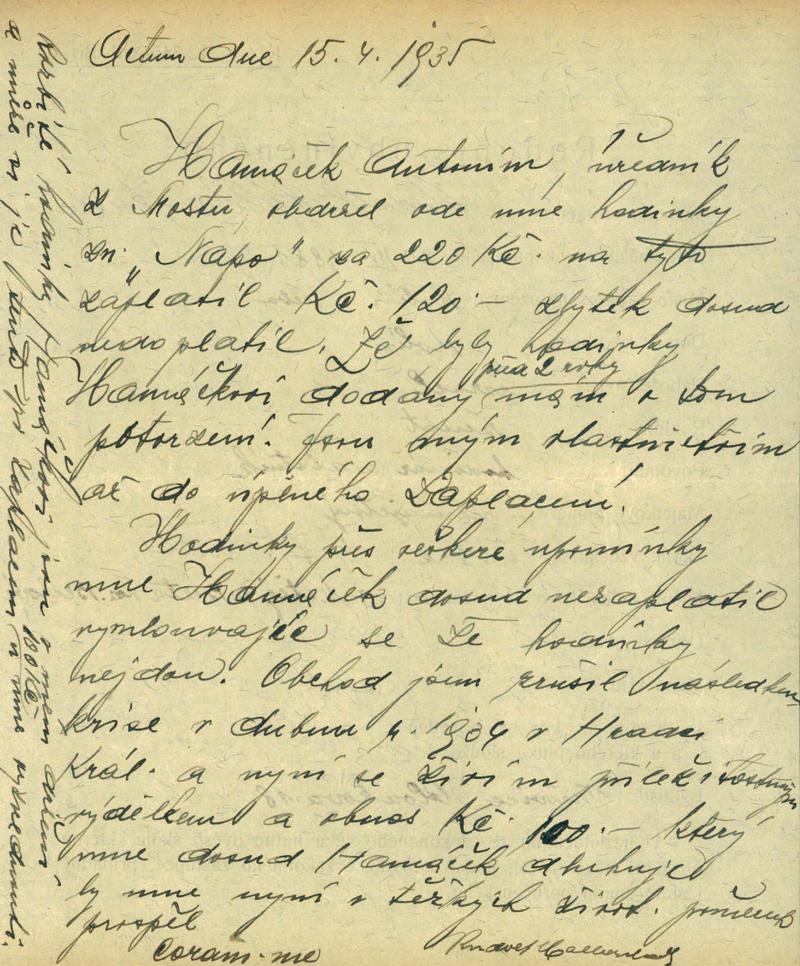 Actum dne 15. 4. 1935
Hamáček Antonín, úředník
z Mostu, obdržel ode mne hodinky
zn. „Napo“ za 220 Kč. na tyto
zaplatil Kč. 120.– zbytek dosud
nedoplatil. Že byly hodinky
před 2 roky
Hamáčkovi dodány mám o tom
potvrzení. Jsou mým vlastnictvím
až do úplného zaplacení.
Hodinky přes veškeré upomínky
mne Hamáček dosud nezaplatil
vymlouvajíc se že hodinky
nejdou. Obchod jsem zrušil následkem
krise v dubnu r. 1934 v Hradci
Král. a nyní se živím příležitostným
výdělkem a obnos Kč. 100.– který
mne dosud Hamáček dluhuje
by mne nyní v těžkých život. poměrech
prospěl
Coram me
hodinky Hamáčkovi jsou v mém
a může si je zaplacení 100 Kč u mne vyzvednouti.